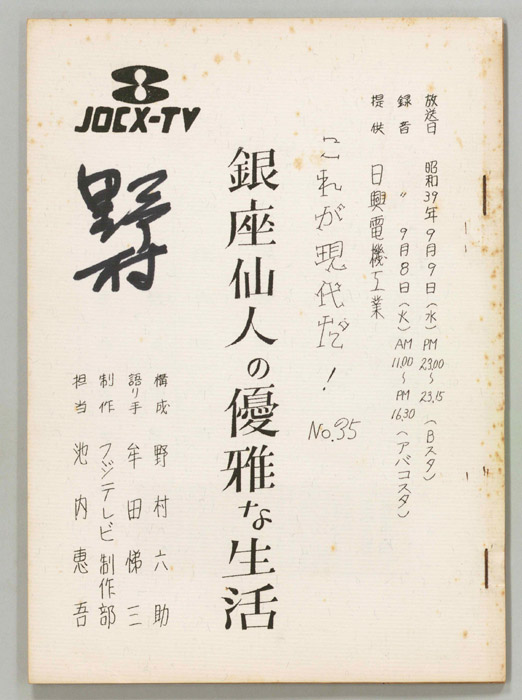 放送日 昭和39年9月9日(水) PM 23.00～23.15 (Bスタ)
録音 〃 9月8日(火) AM 11.00～PM 16.30 (アバコスタ)
提供 日興電機工業
これが現代だ! No.35
銀座仙人の優雅な生活
構成 野村六助
語り手 牟田悌三
制作 フジテレビ制作部
担当 池内恵吾
JOCX-TV
野村